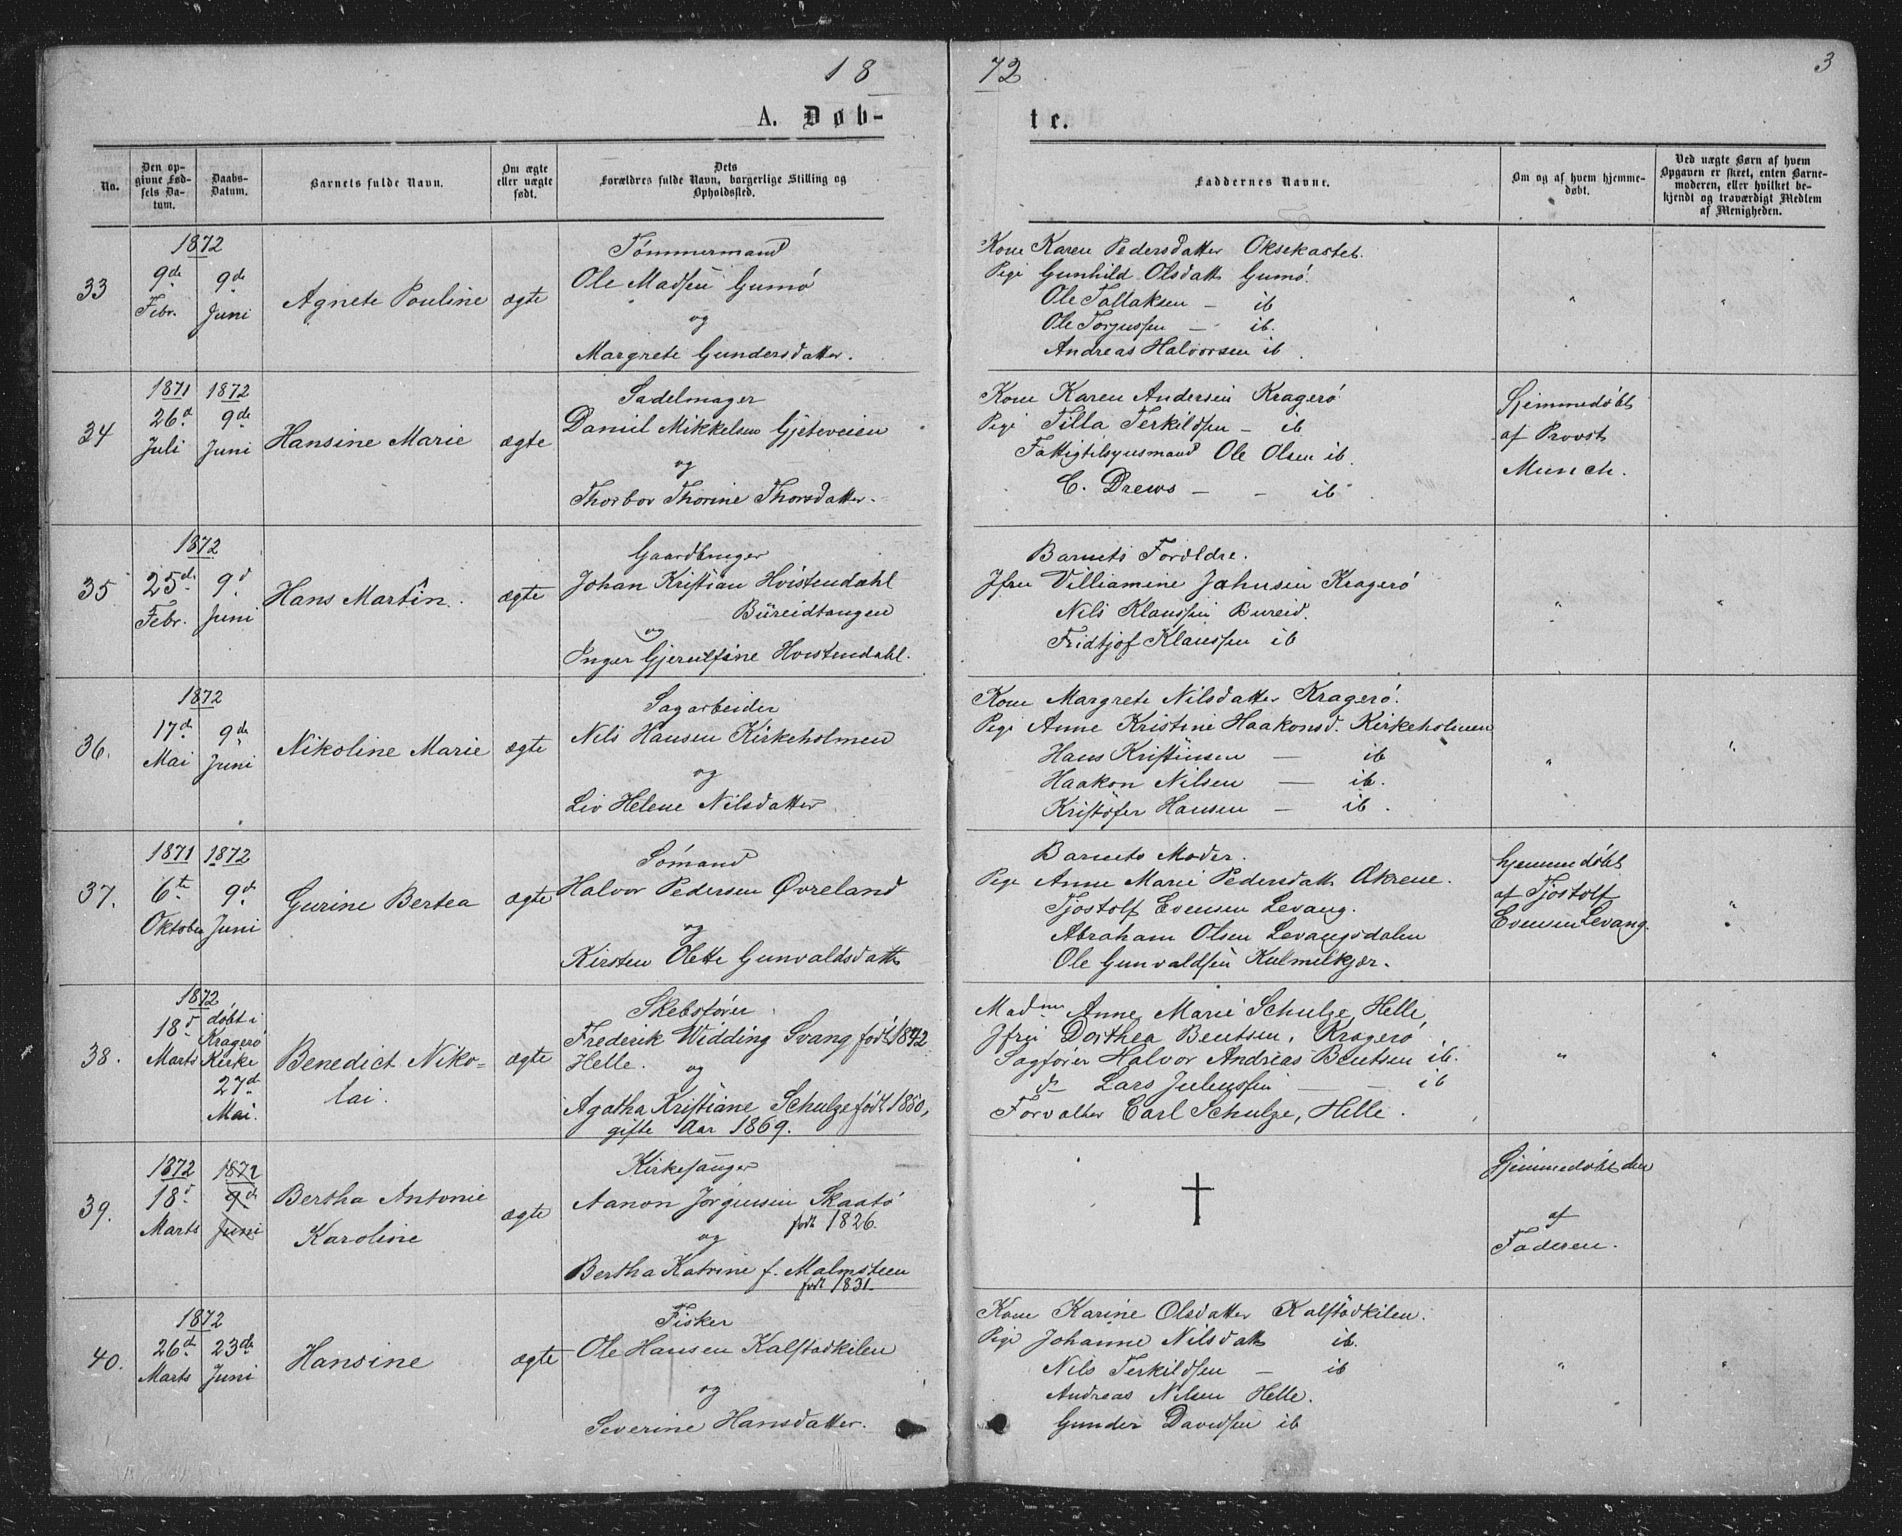 18
72
3
A. Døb-
te.
No.
Den op-
givne Fød-
sels Da-
tum.
Daabs-
Datum.
Barnets fulde Navn.
Om ægte
eller uægte
født.
Dets
Forældres fulde Navn, borgerlige Stilling og
Opholdssted.
Faddernes Navne.
Om og af hvem hjemme-
døbt.
Ved uægte Børn af hvem
Opgaven er skeet, enten Barne-
moderen, eller hvilket be-
kjendt og troværdigt Medlem
af Menigheden.
33
1872
9de
Febr.
9de
Juni
Agnete Pouline
ægte
Tømmermand
Ole Madsen Gumø
og
Margrete Gundersdatter.
Kone Karen Pedersdatter Oksekastet.
Pige Gunhild Olsdatt Gumø.
Ole Tallaksen — ib
Ole Torjussen — ib.
Andreas Halvorsen ib.
"
"
34
1871
26d
Juli
1872
9de
Juni
Hansine Marie
ægte
Sadelmager
Daniel Mikkelsen Gjeteveien
og
Thorbor Thorine Thorsdatter.
Kone Karen Andersen Kragerø
Pige Tilla Terkildsen — ib
Fattigtilsynsmand Ole Olsen ib.
C. Drews — — ib
Hjemmedøbt
af Provst
Munch.
35
1872
25d
Febr.
9d
Juni
Hans Martin.
ægte
Gaardbruger
Johan Kristian Hvistendahl
Büreidtangen
og
Inger Gjerulfine Hvistendahl.
Barnets Forældre.
Jfru Villiamine Jahnsen Kragerø
Nils Klaussen Bureid.
Fridtjof Klaussen ib
"
"
36.
1872
17d
Mai
9de
Juni
Nikoline Marie
ægte
Sagarbeider
Nils Hansen Kirkeholmen
og
Liv Helene Nilsdatter
Kone Margrete Nilsdatter Kragerø.
Pige Anne Kristine Haakonsd. Kirkeholmen
Hans Kristensen — ib
Haakon Nilsen — ib.
Kristofer Hansen — ib.
"
"
37.
1871
6te
Oktober
1872
9d
Juni
Gurine Bertea
ægte
Sømand
Halvor Pedersen Øvreland
og
Kirsten Olette Gunvaldsdatt
Barnets Moder.
Pige Anne Marie Pedersdatt Økrene.
Tjostolf Evensen Levang.
Abraham Olsen Levangsdalen
Ole Gunvaldsen Kulmilkjær.
hjemmedøbt
af Tjostolf
Evensen Levang.
"
38.
1872
18d
Marts
døbt i
Kragerø
Kirke
27d
Mai.
Benedict Niko-
lai.
ægte
Skebsfører
Frederik Widding Svang født 1842
Helle. og
Agatha Kristiane Schulze født 1850,
gifte Aar 1869.
Madme Anne Marie Schulze, Helle
Jfru Dorthea Bentsen, Kragerø
Sagfører Halvor Andreas Bentsen ib.
do Lars Juliussen — — ib
Forvalter Carl Schulze, Helle.
"
"
39.
1872
18d
Marts
1872
9d
Juni
Bertha Antonie
Karoline
ægte
Kirkesanger
Aanon Jørgensen Skaatø
født 1826.
og
Bertha Katrine f. Malmsteen
født 1831
†
Hjemmedøbt den
af
Faderen.
40.
1872
26d
Marts
23de
Juni
Hansine
ægte
Fisker
Ole Hansen Kalstadkilen
og
Severine Hansdatter.
Kone Karine Olsdatter Kalstadkilen.
Pige Johanne Nilsdatt ib.
Nils Terkildsen — ib
Andreas Nilsen Helle.
Gunder Davidsen ib
"
"